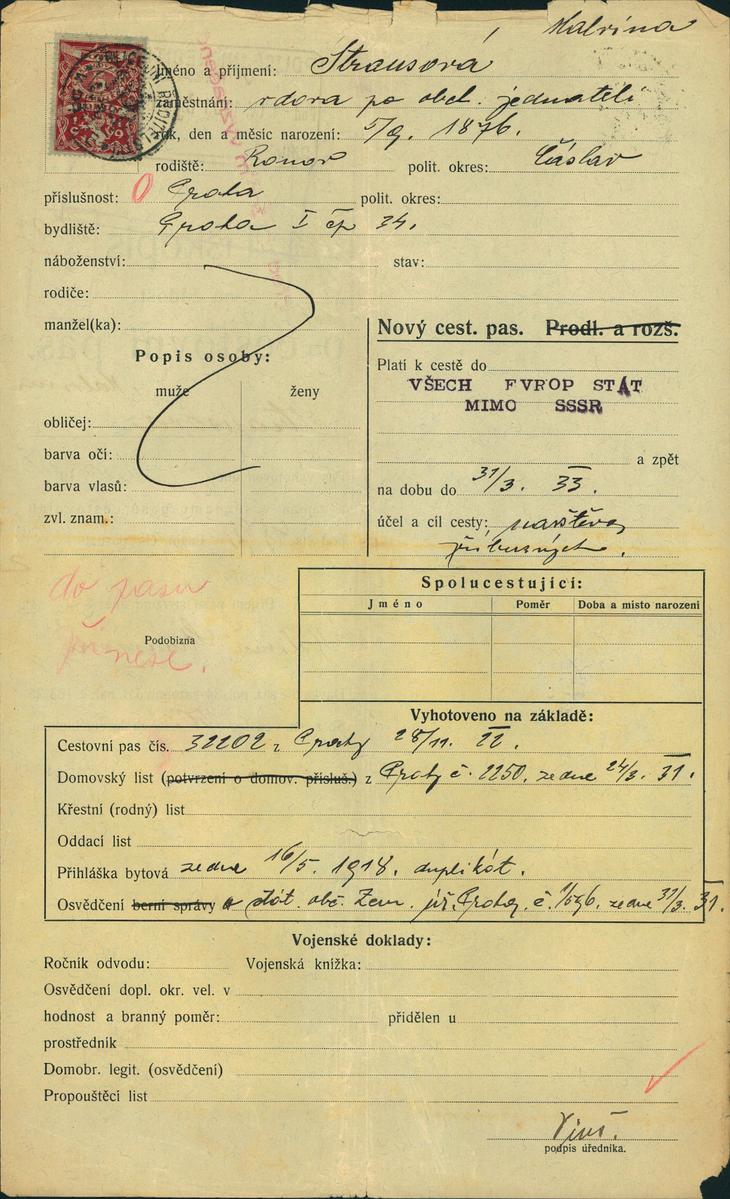 Malvína
Jméno a příjmení: Strausová
zaměstnání: vdova po obch. jednateli
rok, den a měsíc narození: 5/9. 1876.
rodiště: Ronov polit. okres: Čáslav
příslušnost: Praha polit. okres:
bydliště: Praha I čp 34.
náboženství: stav:
rodiče:
manžel(ka):
Popis osoby:
muže ženy
obličej:
barva očí:
barva vlasů:
zvl. znam.:
Nový cest. pas. Prodl. a rozš.
Platí k cestě do
VŠECH EVROP STÁT
MIMO SSSR
a zpět
na dobu do 31/3. 33.
účel a cíl cesty: návštěva
příbuzných.
do pasu
přinese.
Podobizna
Spolucestující:
Jméno Poměr Doba a místo narození
Vyhotoveno na základě:
Cestovní pas čís. 32202 z Prahy 28/11. 22.
Domovský list (potvrzení o domov. přísluš.) z Prahy č. 2250, ze dne 24/3. 31.
Křestní (rodný) list
Oddací list
Přihláška bytová ze dne 16/5. 1918. duplikát.
Osvědčení berní správy o stát. obč. Zem. úř. Praha, č. ze dne 31/3. 31.
Vojenské doklady:
Ročník odvodu: Vojenská knížka:
Osvědčení dopl. okr. vel. v
hodnost a branný poměr: přidělen u
prostředník
Domobr. legit. (osvědčení)
Propouštěcí list
podpis úředníka.